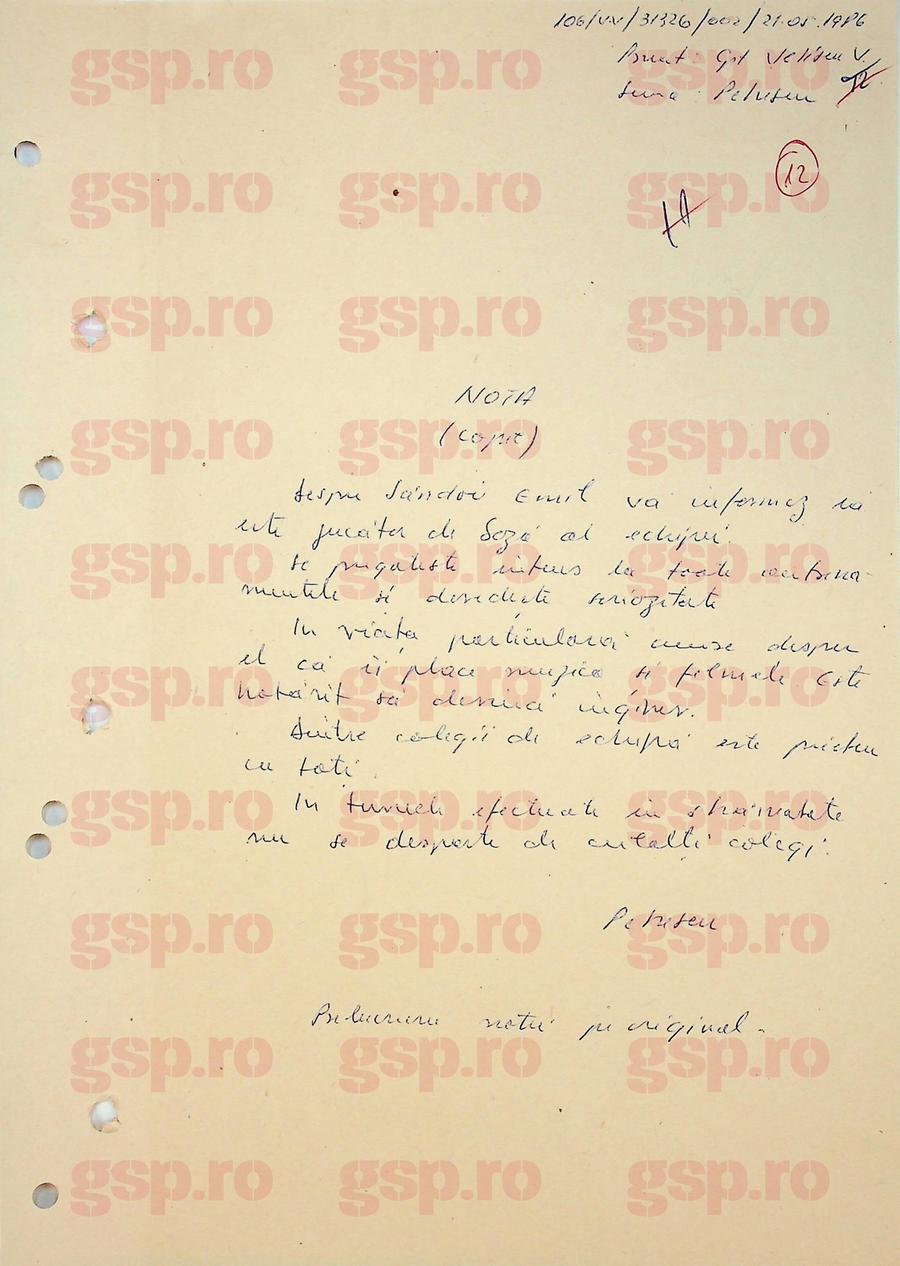 106/VV/31326/002/21.05.1986
Primit: Cpt V.
Sursa: Petrescu
12
12
11
NOTA
(copie)
Despre Săndoi Emil vă informez că
este jucător de bază al echipei.
Se pregăteste intens la toate antrena-
mentele si dovedeste seriozitate
In viata particulară despre
el că îi place muzica si filmele Este
hotărît să devină inginer.
Dintre colegii de echipă este prieten
cu toti.
In turneele efectuate in străinatate
nu se desparte de ceilalți colegi.
Petrescu
Prelucrarea notei pe original.
gsp.ro gsp.ro gsp.ro
gsp.ro gsp.ro gsp.ro
gsp.ro gsp.ro gsp.ro
gsp.ro gsp.ro gsp.ro
gsp.ro gsp.ro gsp.ro
gsp.ro gsp.ro gsp.ro
gsp.ro gsp.ro gsp.ro
gsp.ro gsp.ro gsp.ro
gsp.ro gsp.ro gsp.ro
gsp.ro gsp.ro gsp.ro